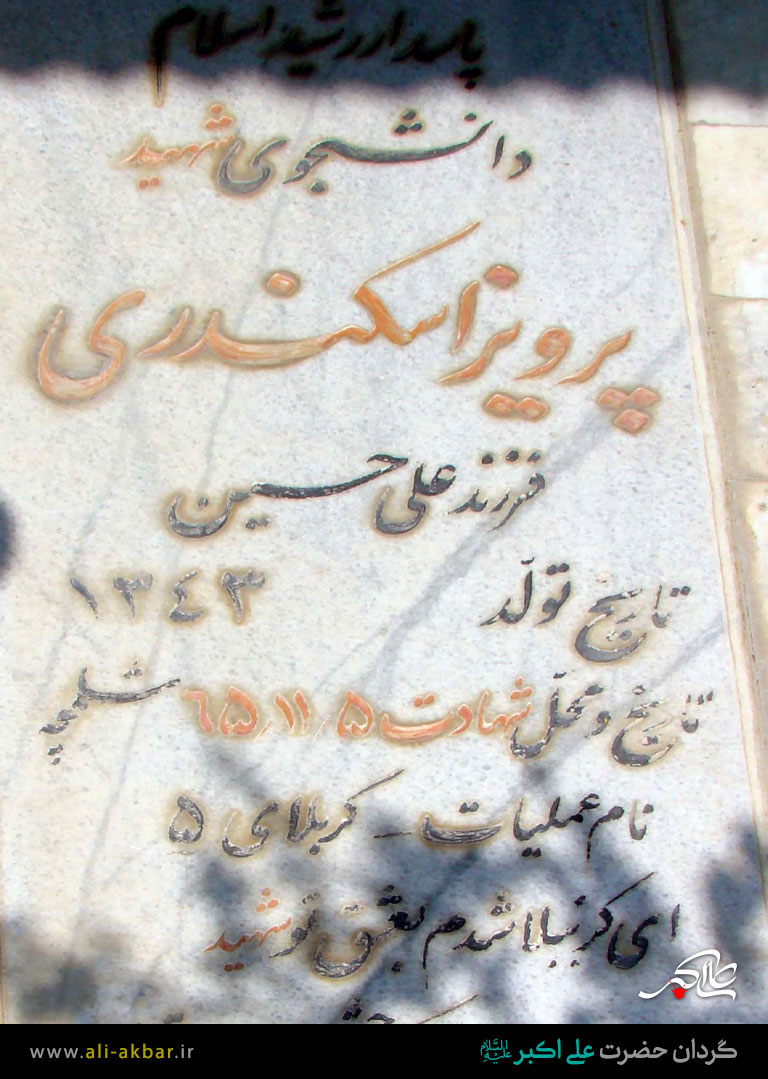 پاسدار رشید اسلام
دانشجوی شهید
پرویز اسکندری
فرزند علی حسین
تاریخ تولّد ۱۳۴۳
تاریخ و محلّ شهادت ۶۵/۱۱/۵ شلمچه
نام عملیات - کربلای ۵
ای کربلا شدم بعشق تو شهید
علی اکبر
گردان حضرت علی اکبر علیه السلام
www.ali-akbar.ir